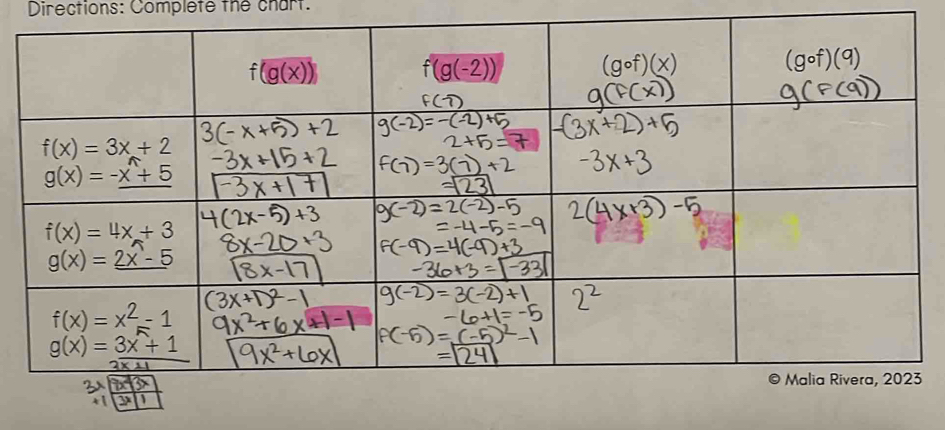 Directions: Complete the chart.
f(g(x))
f(g(-2))
F(7)
(g∘f)(x)
g(F(x))
(g∘f)(9)
g(F(9))
f(x) = 3x + 2
g(x) = -x + 5
3(-x+5)+2
-3x+15+2
-3x+17
g(-2)=-(-2)+5
2+5=7
F(7)=3(7)+2
=23
-(3x+2)+5
-3x+3
f(x) = 4x + 3
g(x) = 2x - 5
4(2x-5)+3
8x-20+3
8x-17
g(-2)=2(-2)-5
=-4-5=-9
F(-9)=4(-9)+3
-36+3=-33
2(4x+3)-5
f(x) = x² - 1
g(x) = 3x + 1
(3x+1)²-1
9x²+6x+1-1
9x²+6x
g(-2)=3(-2)+1
-6+1=-5
F(-5)=(-5)²-1
=24
2²
3x +1
3x 3x
+1 3x 1
© Malia Rivera, 2023